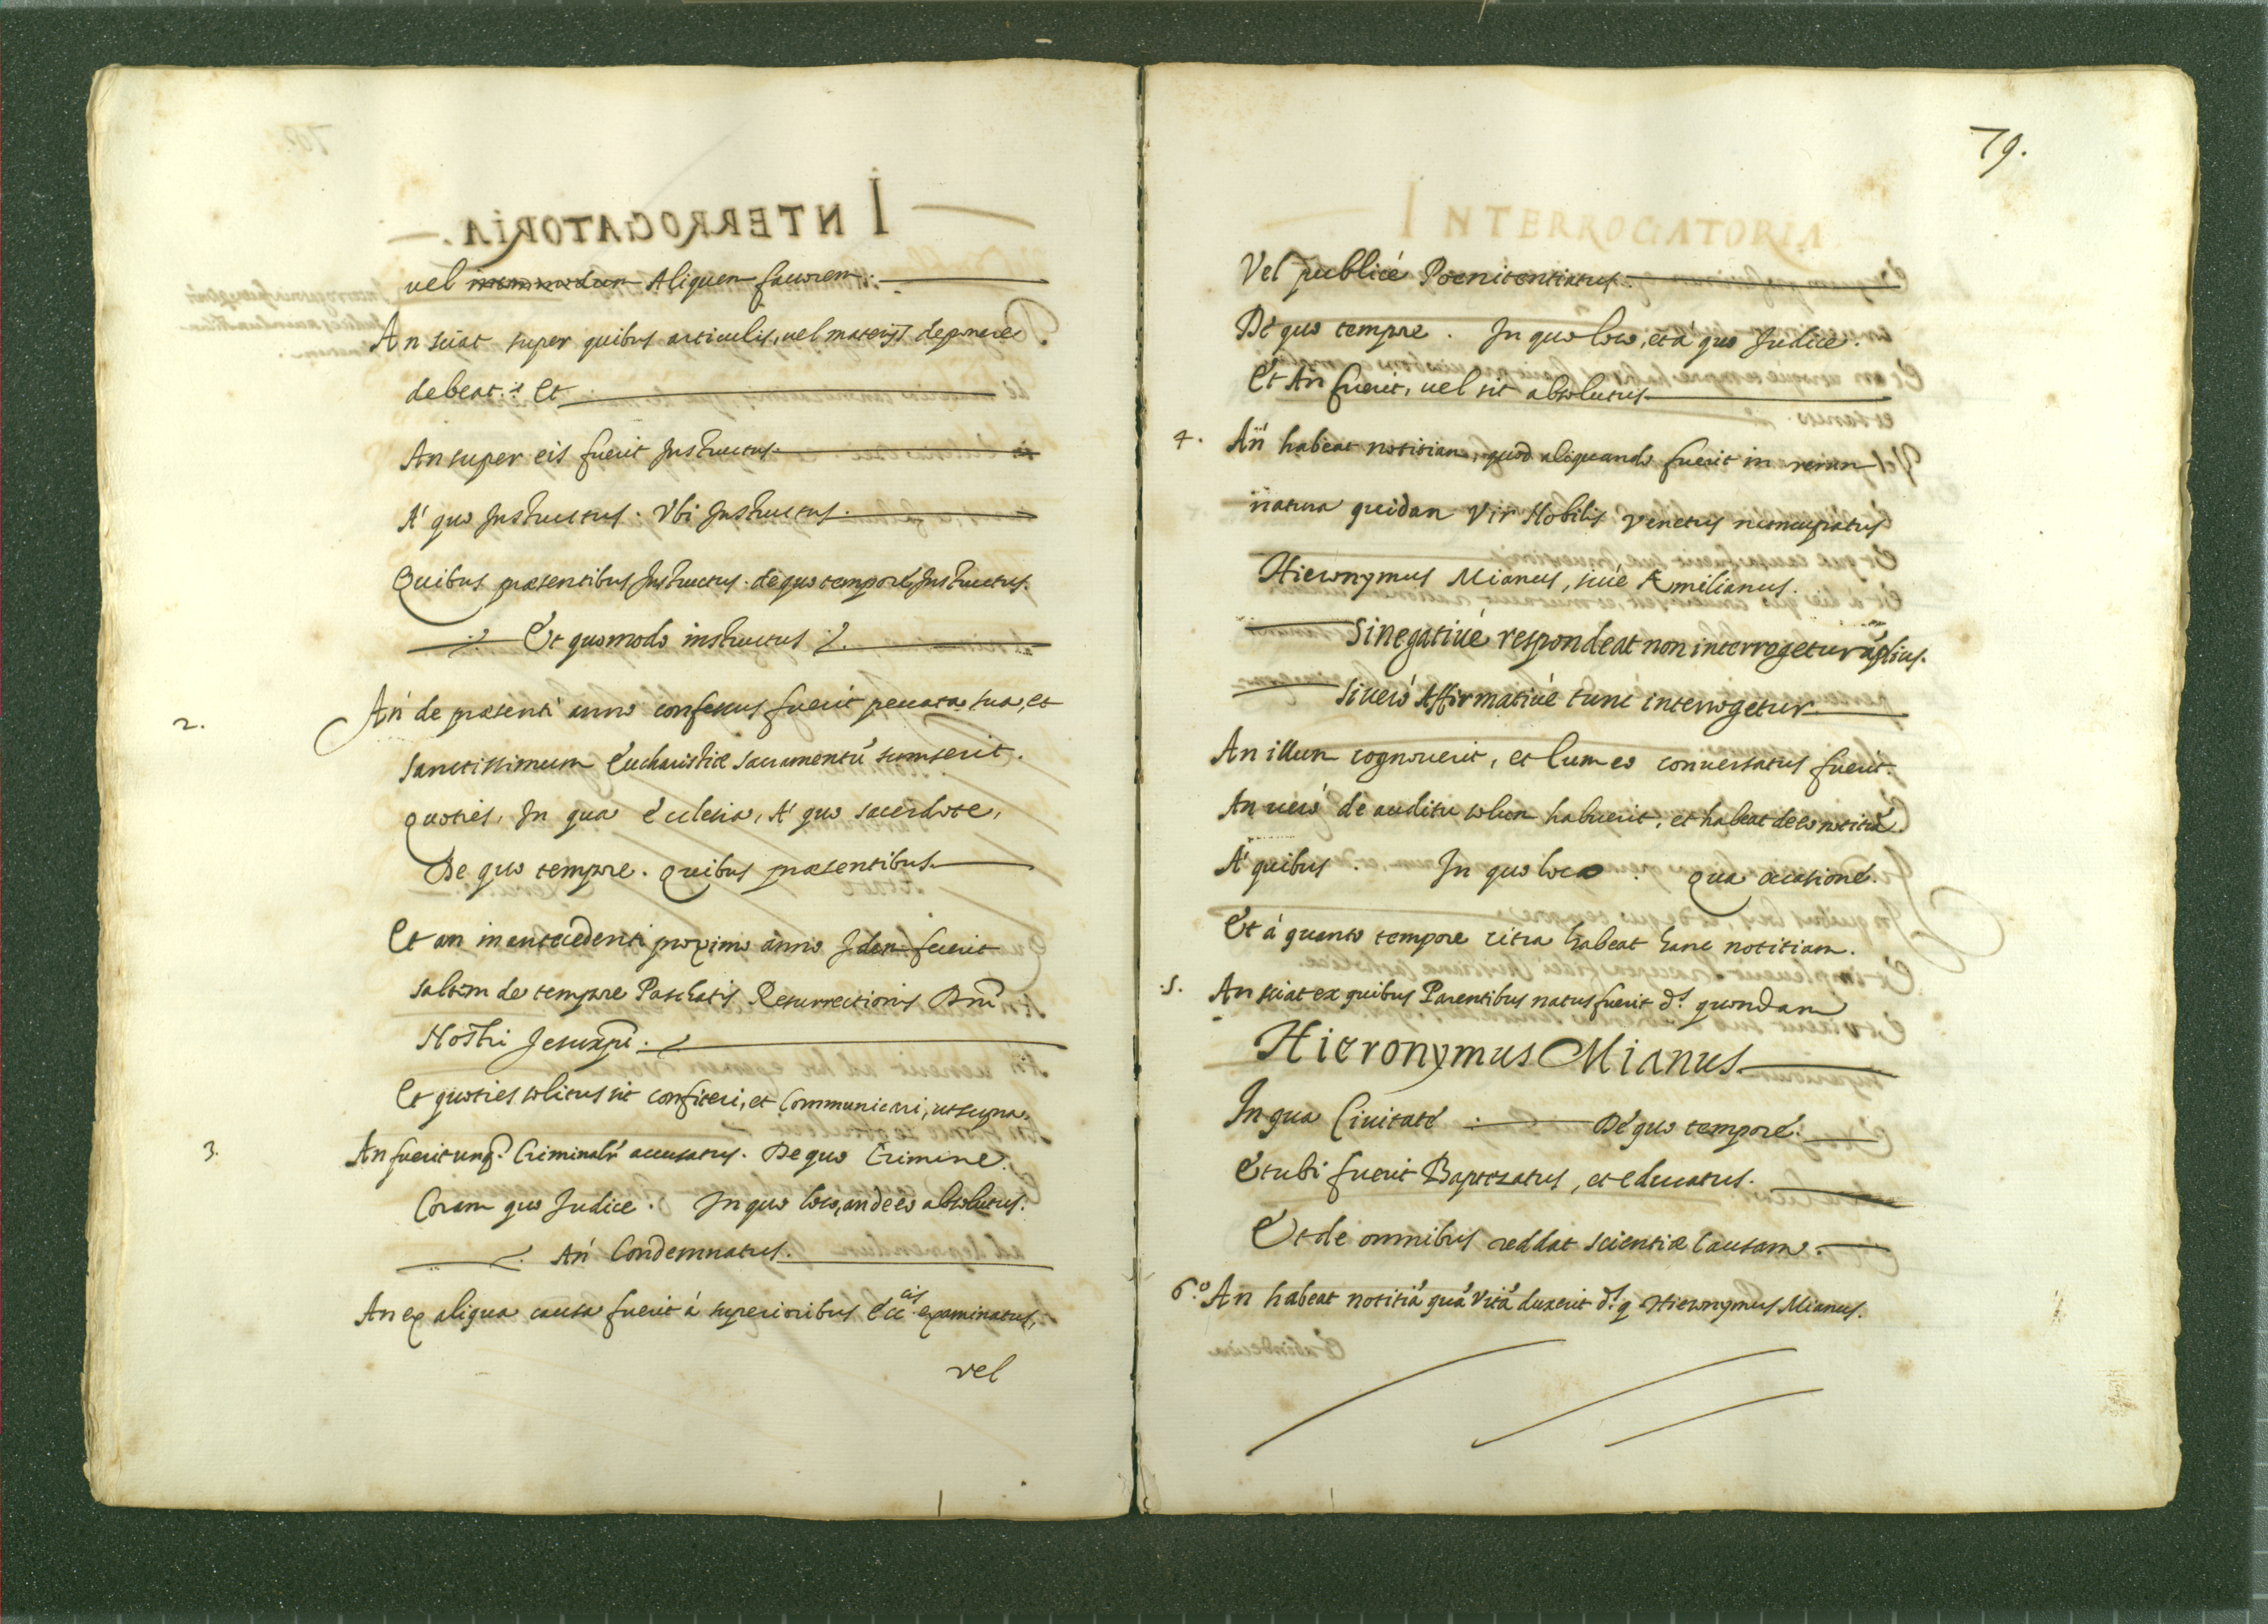 vel Aliquem fauorem.
An sciat super quibus articulis, uel materijs deponere
debeat. Et
An super eis fuerit Instructus.
A' quo Instructus. Vbi Instructus.
Quibus praesentibus Instructus. de quo tempore Instructus.
Et quomodo instructus
2. An de praesenti anno confessus fuerit peccata sua, et
sanctissimum Eucharistiae sacramentũ sumserit.
quoties, In qua Ecclesia, A' quo sacerdote,
De quo tempore. Quibus praesentibus
Et an in antecedenti proximo anno Idem fecerit
saltem de tempore Paschatis Resurrectionis Dnĩ
Nostri Jesuxpĩ.
Et quoties solitus sit confiteri, et Communicari, ut supra.
3. An fuerit unq̃. Criminalr̃ accusatus. De quo Crimine.
Coram quo Judice. In quo loco, an de eo absolutus.
An Condemnatus.
An ex aliqua causa fuerit á superioribus Ecc.cis examinatus,
vel
79.
Vel publicé Poenitentiatus.
Dé quo tempore. In quo loco, et á quo Judice.
Et An fuerit, uel sit absolutus
4. An habeat notitiam, quod aliquando fuerit in rerum
natura quidam Vir Nobilis Venetus nuncupatus
Hieronymus Mianus, siué Æmilianus.
Si negatiué respondeat non interrogetur úlplius.
Si ueró Affirmatiué tunc interrogetur
An illum cognouerit, et Cum eo conuersatus fuerit.
An ueró de auditu solum habuerit, et habeat de eo notitiã.
A' quibus. In quo loco. Qua occasioné.
Et á quanto tempore citra habeat hanc notitiam.
.5. An sciat ex quibus Parentibus natus fuerit d.s quondam
Hieronymus Mianus
In qua Ciuitaté Dé quo temporé.
Et ubi fuerit Baptizatus, et educatus.
Et de omnibus reddat scientiae Causam.
6.o An habeat notitiã quã Vitã duxerit d.s q Hieronymus Mianus.